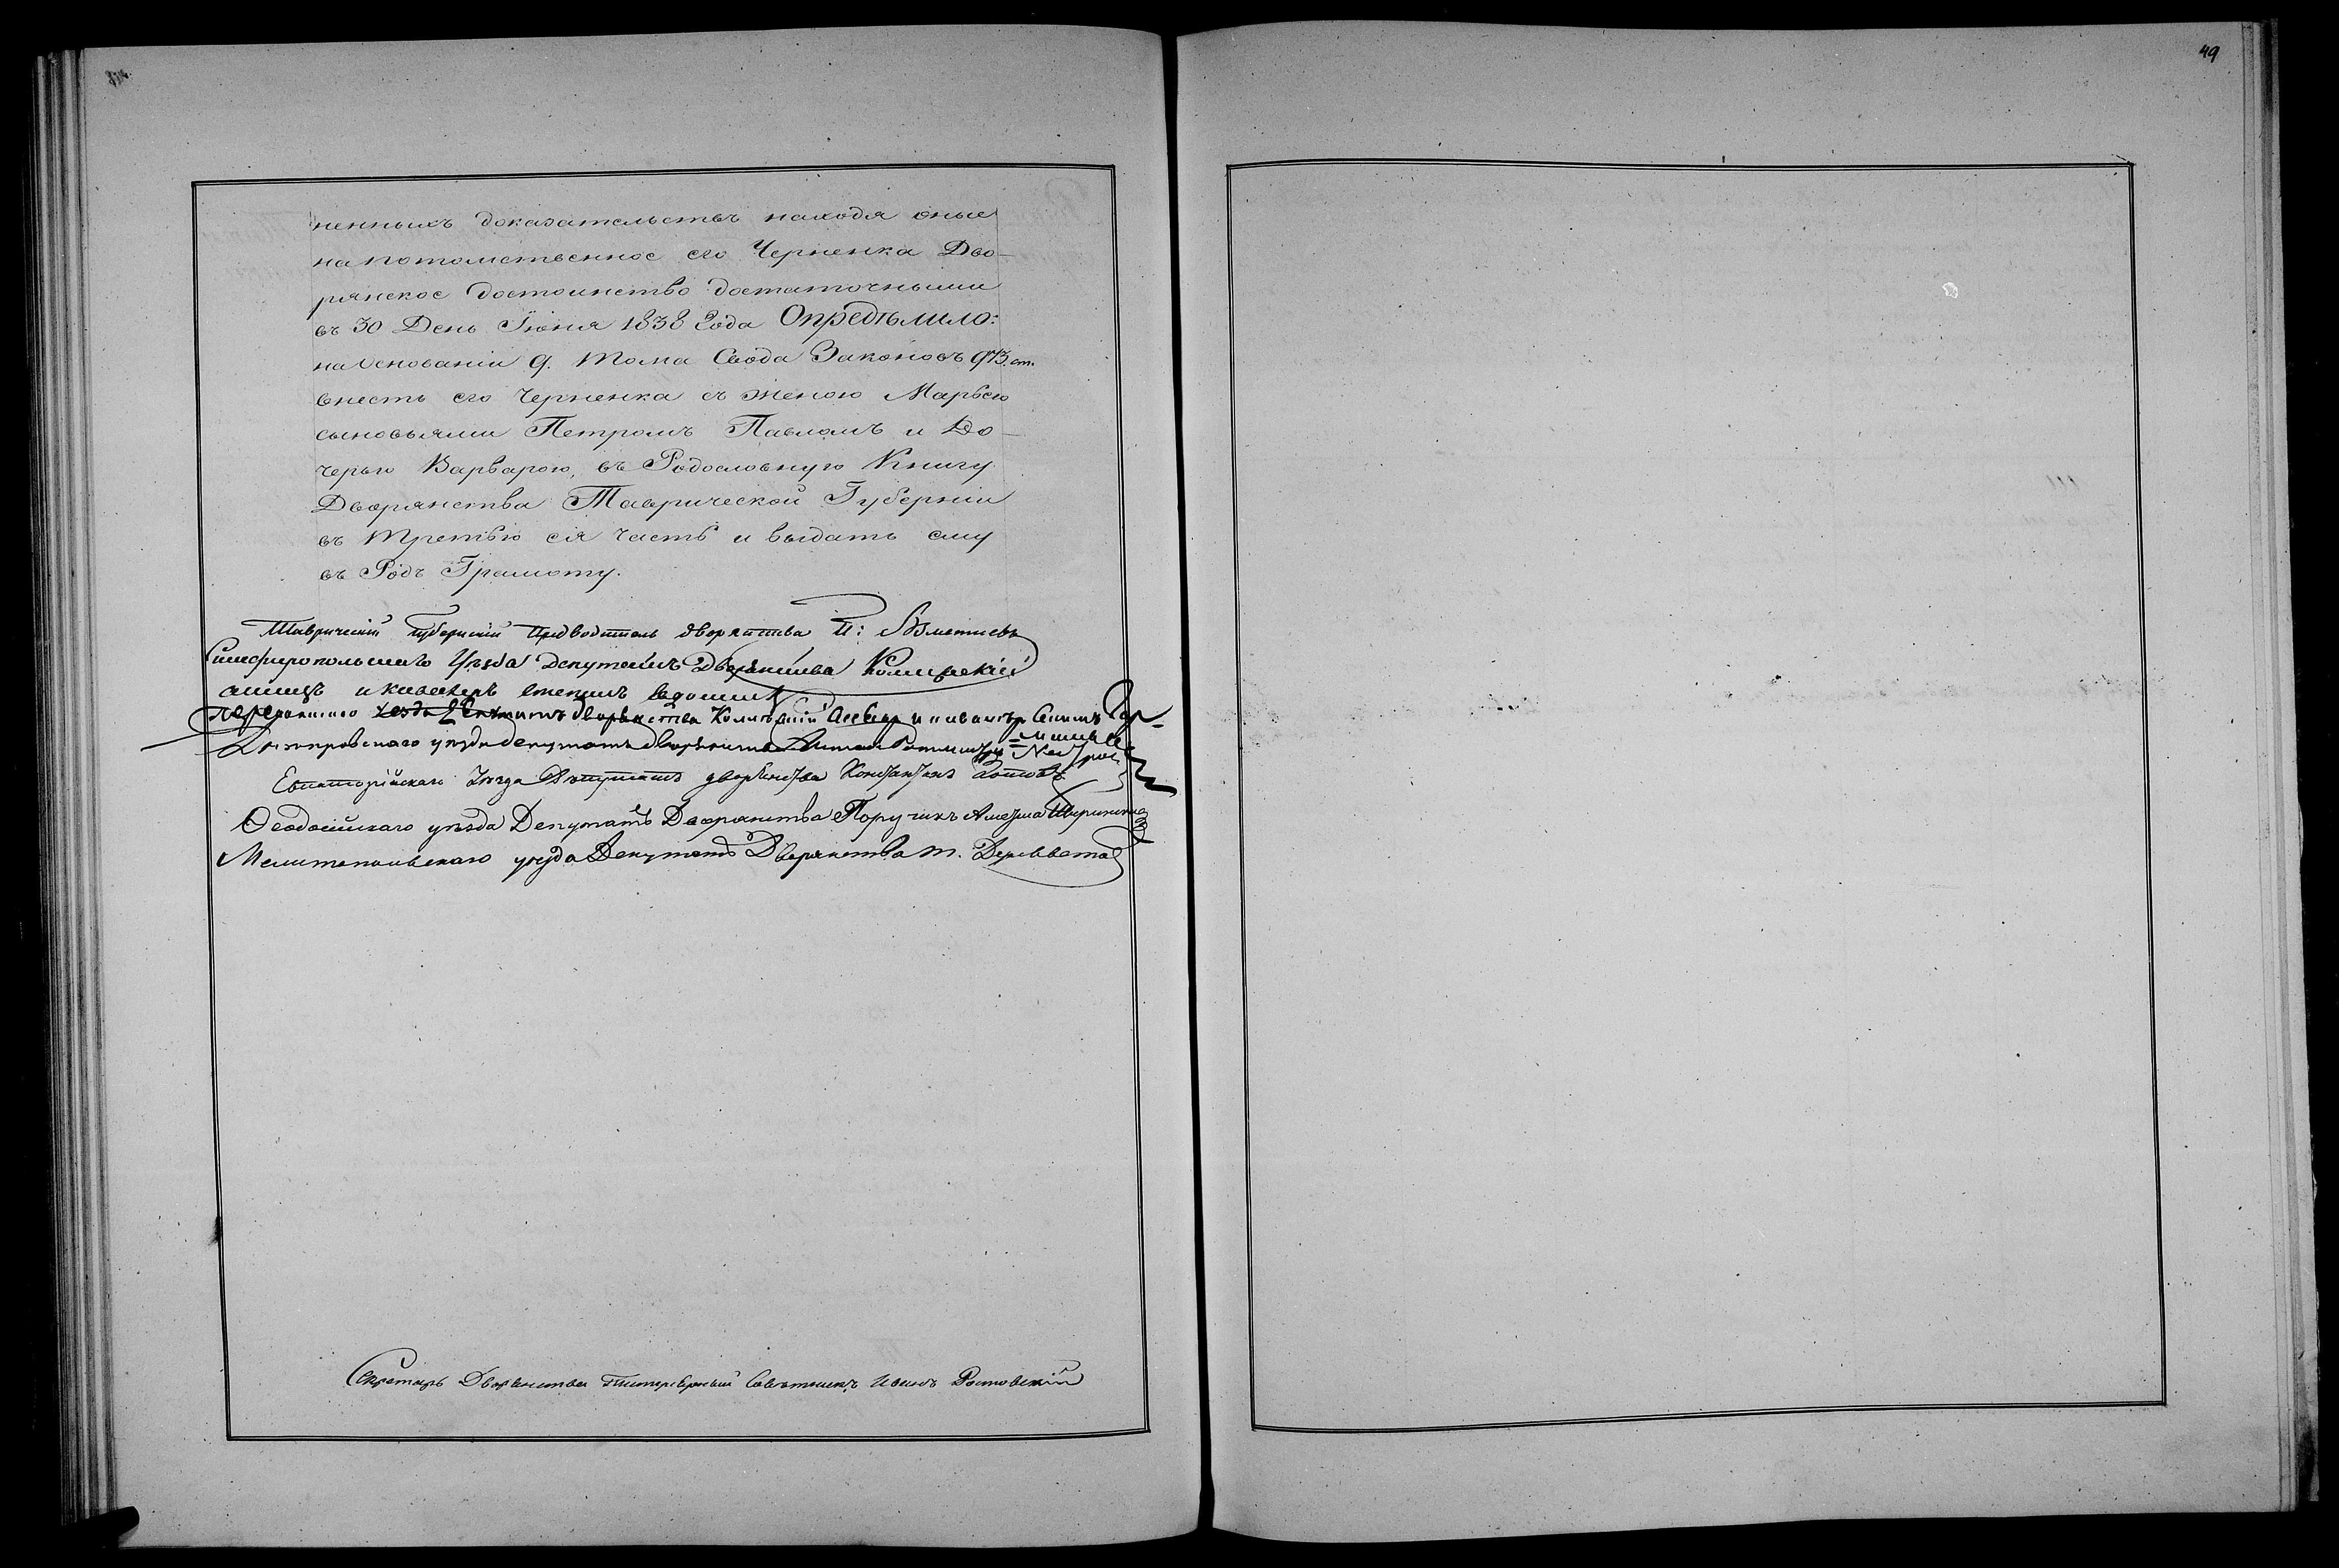 49
ненныхъ доказательствъ находя оные
на потомственное его Черненка Дво-
рянское достоинство достаточными
въ 30 День Іюня 1838 Года Опредѣлило:
на Основаніи 9. Тома Свода Законовъ 973. ст.
внесть его Черненка съ женою Марьею
сыновьями Петромъ Павломъ и До-
черью Варварою, въ Родословную Книгу
Дворянства Таврической Губерніи
въ Третью ея Часть и выдать ему
въ Родъ Грамоту.
Таврическій Губернскій Предводитель дворянства
Симферопольскаго Уѣзда Депутатъ Дворянства Колежскій
и кавалеръ
Перекопскаго Уезда Депутатъ дворянства и кавалеръ
Днѣпровскаго уѣзда депутатъ дворянства
Евпаторійскаго Уѣзда Депутатъ дворянства Константинъ
Ѳеодосійскаго уѣзда Депутатъ Дворянства Поручикъ
Мелитопольскаго уѣзда Депутатъ Дворянства
Секретарь Дворянства Титулярный Совѣтникъ Иванъ Ростовскій